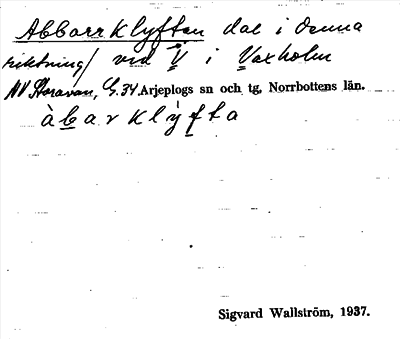 Abborrklyftan dal i denna
riktning/ vid V i Vaxholm
NV Storavan, G. 34 Arjeplogs sn och tg, Norrbottens län.
àbarklỳfta
Sigvard Wallström, 1937.